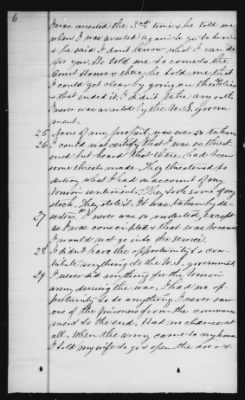 6
I was arrested the 5th time he told me
when I was arrested again to go to him
& he said I dont know what I can do
for you. He told me to come to the
Court House & there he told me that
I could get clear by going on
& that ended it. I didn't take any oath
I never was arrested by the U.S. govern-
ment.
25 None of my property was ever so taken
26 I could not certify that I was threat-
ened but heard that there had been
some threats made. They threatened to
destroy what I had on account of my
Union sentiments. They took some of my
stock. They stole it. It was taken by de-
serters.
27 I never was so molested, except
as I was conscripted & that was because
I would not go into the service.
28 I didn't have the opportunity to con-
tribute anything to the U.S. government
29 I never did anything for the Union
army during the war. I had no op-
portunity to do anything. I never saw
one of the prisoners from the commence-
ment to the end. Had no chance at
all. When the army came to my house
I told my wife to git open the door &